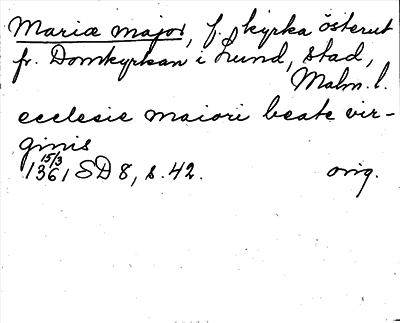 Mariæ major, f. kyrka österut
fr. Domkyrkan i Lund, stad,
Malm. l.
ecclesie maiori beate vir-
ginis
15/3
1361 SD 8, s. 42. orig.